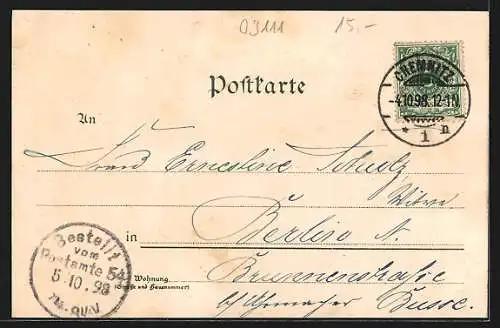 03111 15.-
CHEMNITZ
-4.10.98.12-1N
* 1 n
Postkarte
An
Frau Ernestine Scholz
Witwe
in Berlin N.
Wohnung
(Straße und Hausnummer)
Brunnenstraße
b/ Uhrmacher Busse.
Bestellt
vom
Postamte 54
5.10.98